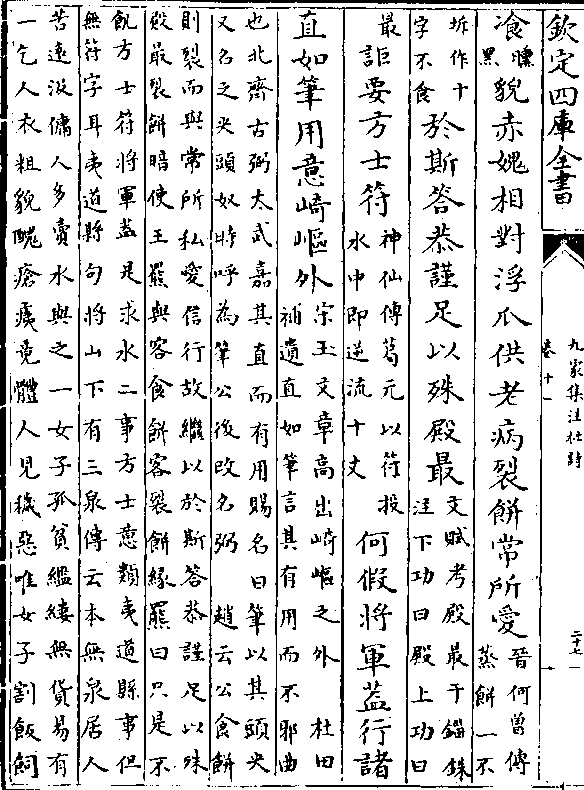 欽定四庫全書
九家集注杜詩
卷十一
二十七
飡曛黑貌赤愧相對浮瓜供老病裂餅常所愛晉何曾傳蒸餅一不
坼作十字不食於斯答恭謹足以殊殿最文賦考殿最于錙銖注下功曰殿上功曰
最詎要方士符神仙傳葛元以符投水中即逆流十丈何假將軍蓋行諸
直如筆用意崎嶇外宋玉文章高出崎嶇之外 杜田補遺直如筆言其有用而不邪曲
也北齊古弼太武嘉其直而有用賜名曰筆以其頭尖
又名之尖頭奴時呼為筆公後改名弼 趙云公食餅
則裂而與常所私愛信行故繼以於斯答恭謹足以殊
殿最裂餅暗使王羆與客食餅客裂餅緣羆曰只是不
飢方士符將軍蓋是求水二事方士意類夷道縣事但
無符字耳夷道縣句將山下有三泉傳云本無泉居人
苦遠汲傭人多賣水與之一女子孤貧繿縷無貨易有
一乞人衣粗貌醜瘡痍竟體人見穢惡唯女子割飯飼